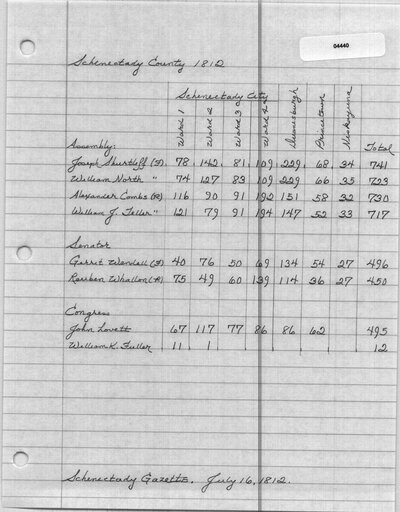 04440
Schenectady County 1812
Schenectady City
Ward 1 Ward 2 Ward 3 Ward 4 Duanesburgh Princetown Niskayuna
Assembly: Total
Joseph Shurtleff (F) 78 142 81 109 229 68 34 741
William North " 74 127 83 109 229 66 35 723
Alexander Combs (R) 116 90 91 192 151 58 32 730
William J. Teller " 121 79 91 194 147 52 33 717
Senator
Garret Wendell (F) 40 76 50 69 134 54 27 496
Reuben Whallon (R) 75 49 60 139 114 36 27 450
Congress
John Lovett 67 117 77 86 86 62 495
William K. Fuller 11 1 12
Schenectady Gazette. July 16, 1812.